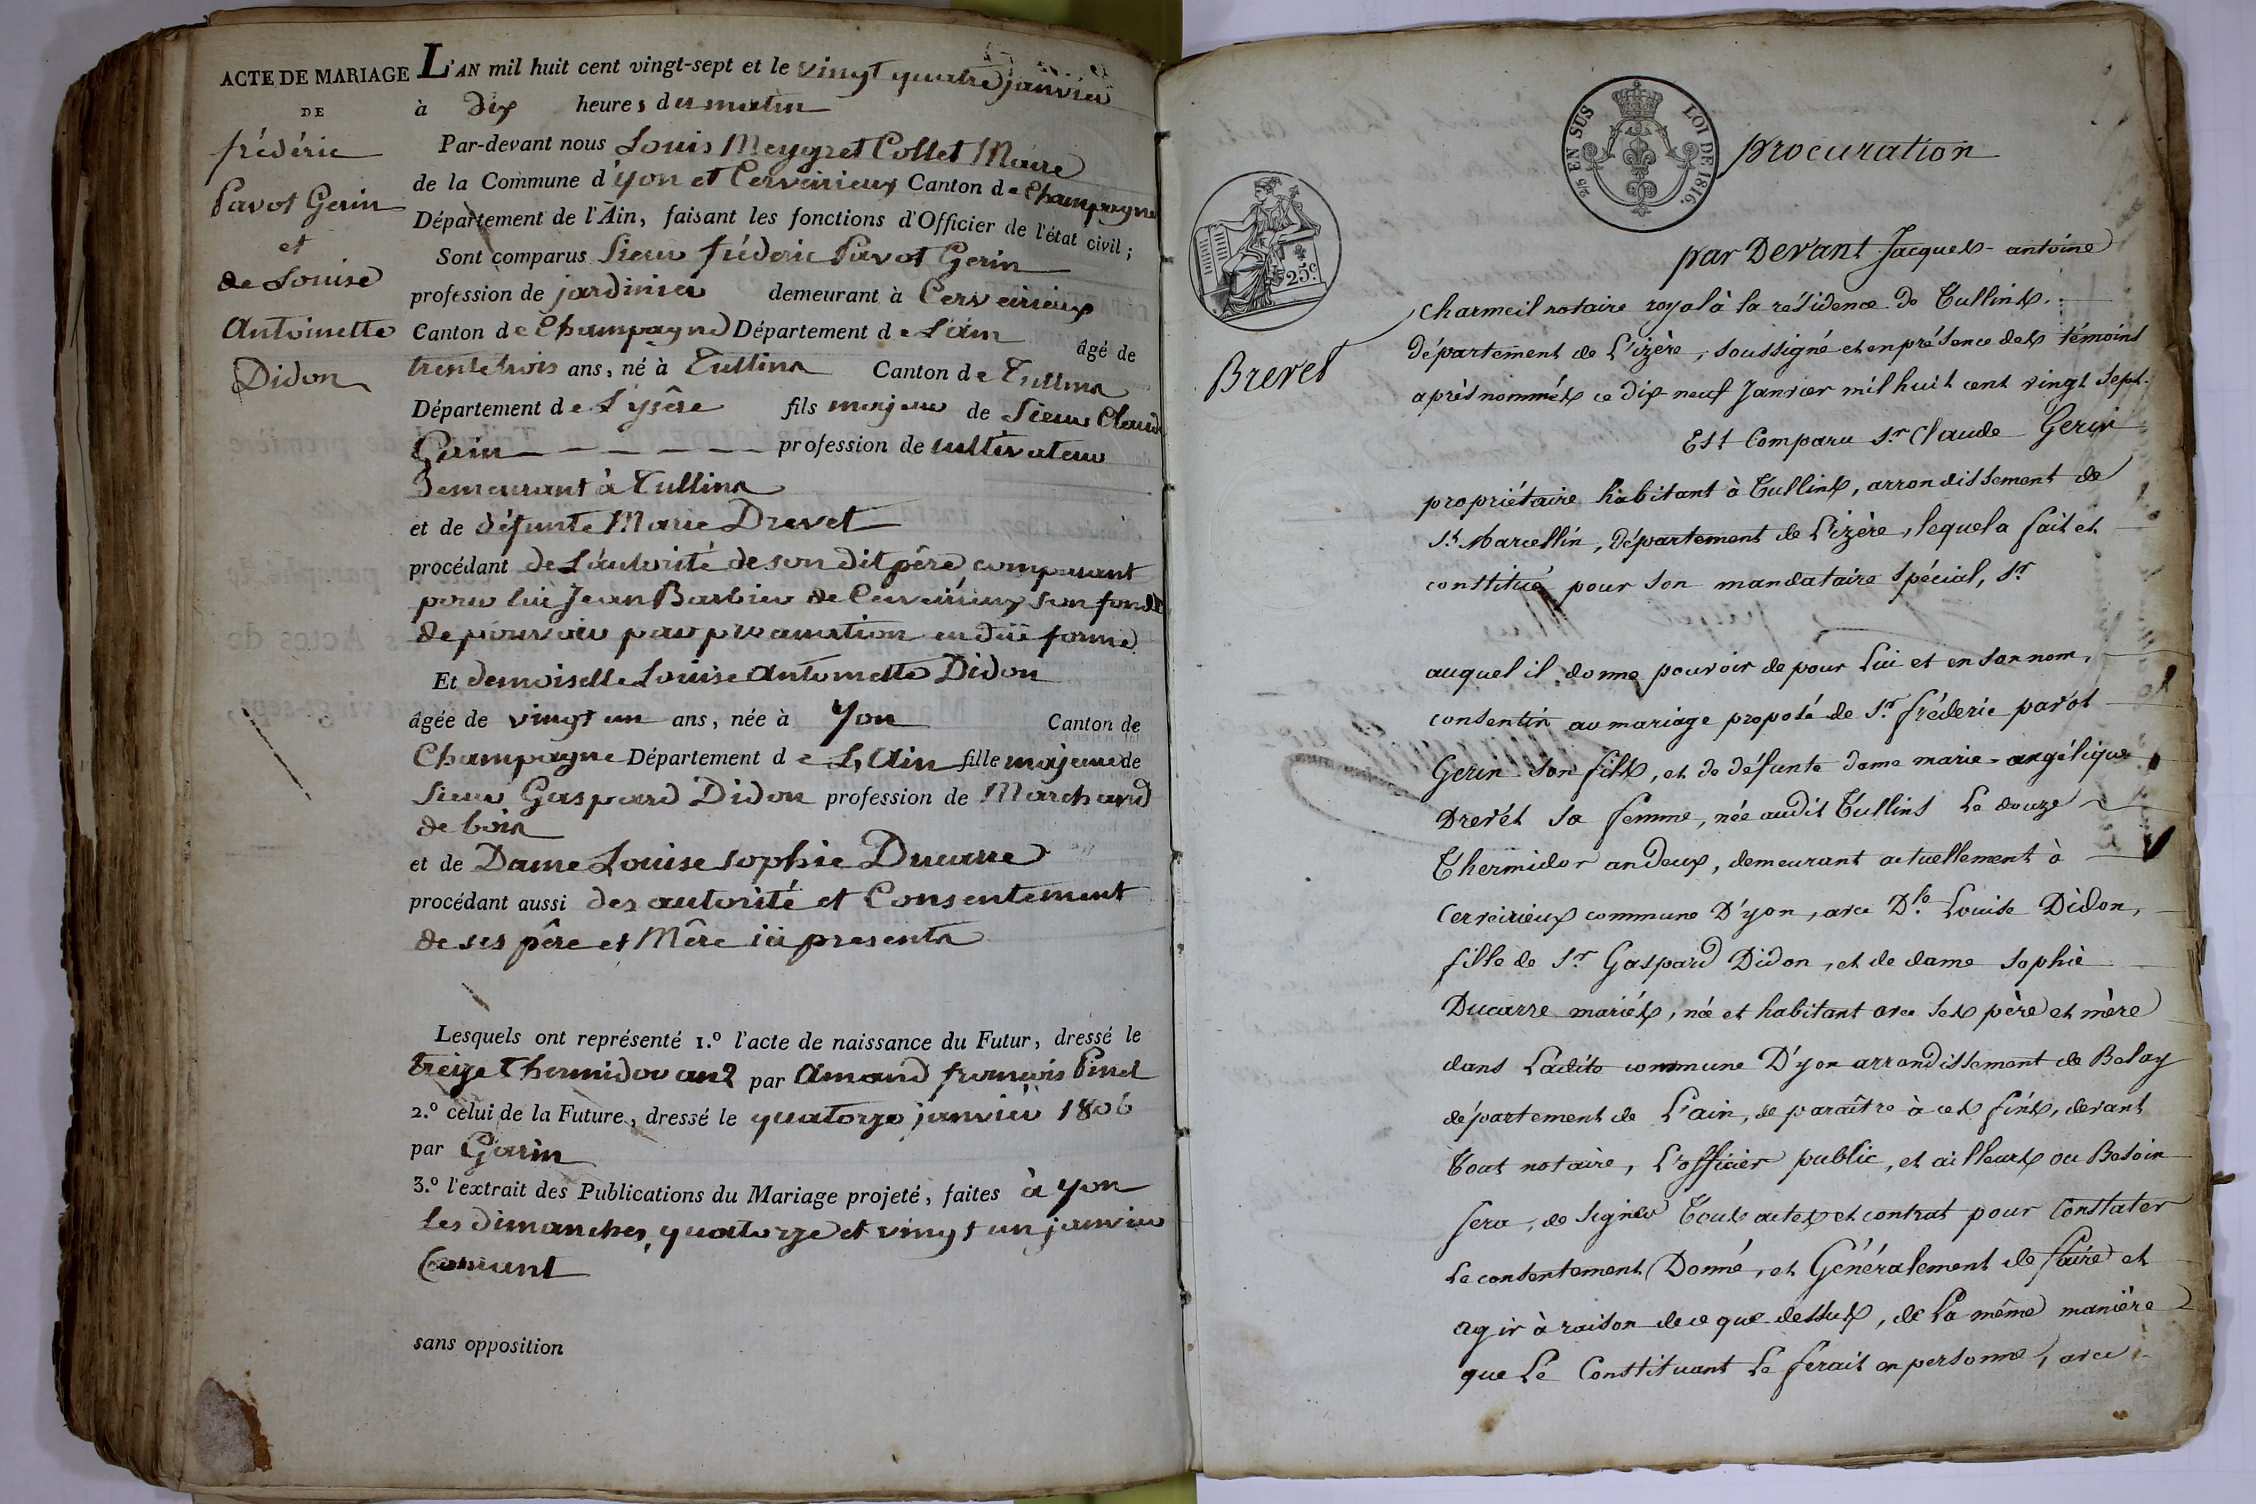 ACTE DE MARIAGE
DE
frédéric
Pavot Gerin
et
de Louise
Antoinette
Didon
L'AN mil huit cent vingt-sept et le vingt quatre janvier
à dix heures du matin
Par-devant nous Louis Meygret Collet Maire
de la Commune d'yon et Cerveirieux Canton de Champagne
Département de l'Ain, faisant les fonctions d'Officier de l'état civil;
Sont comparus Sieur frédéric Pavot Gerin
profession de jardinier demeurant à Cerveirieux
Canton de Champagne Département de L'ain âgé de
trente trois ans, né à Tullins Canton de Tullins
Département de L'ysère fils majeur de Sieur Claude
Gerin profession de cultivateur
Demeurant à Tullins
et de défunte Marie Drevet
procédant de L'autorité de son dit père comparant
pour lui Jean Barbier de Cerveirieux son fondé
de pouvoir par procuration en düe forme
Et demoiselle Louise Antoinette Didon
âgée de vingt un ans, née à Yon Canton de
Champagne Département de L'Ain fille majeure de
Sieur Gaspard Didon profession de Marchand
de bois
et de Dame Louise Sophie Ducarre
procédant aussi des autorité et Consentement
de ses père et Mère ici presents
Lesquels ont représenté 1.º l'acte de naissance du Futur, dressé le
treize Thermidor an 2 par Amand françois Pinet
2.º celui de la Future, dressé le quatorze janvier 1806
par Garin
3.º l'extrait des Publications du Mariage projeté, faites à Yon
les dimanches, quatorze et vingt un janvier
Courant
sans opposition
2/5 EN SUS LOI DE 1816.
procuration
25 c.
Brevet
par Devant Jacques-antoine
Charmeil notaire royal à la résidence de Tullins.
département de L'izère, soussigné et en présence des témoins
après nommés ce dix-neuf Janvier mil huit cent vingt sept.
Est Comparu S.r Claude Gerin
propriétaire habitant à Tullins, arrondissement de
S.t Marcellin, département de L'izère, lequel a fait et
constitué pour son mandataire spécial, S.r
auquel il donne pouvoir de pour Lui et en son nom,
consentir au mariage proposé de S.r fréderic pavot
Gerin son fils, et de défunte dame marie-angélique
Drevét sa femme, née audit Tullins Le douze
Thermidor an deux, demeurant actuellement à
Cerveirieux commune D'yon, avec D.lle Louise Didon,
fille de S.r Gaspard Didon, et de dame Sophie
Ducarre mariés, née et habitant avec ses père et mère
dans Ladite commune D'yon arrondissement de Belay
département de L'ain, de paraître à ces fins, devant
Tout notaire, L'officier public, et ailleurs ou Besoin
sera, de signer Tous actes et contrat pour Constater
Le consentement Donné, et Généralement de faire et
agir à raison de ce que dessus, de La même manière
que Le Constituant Le ferait en personne, avec